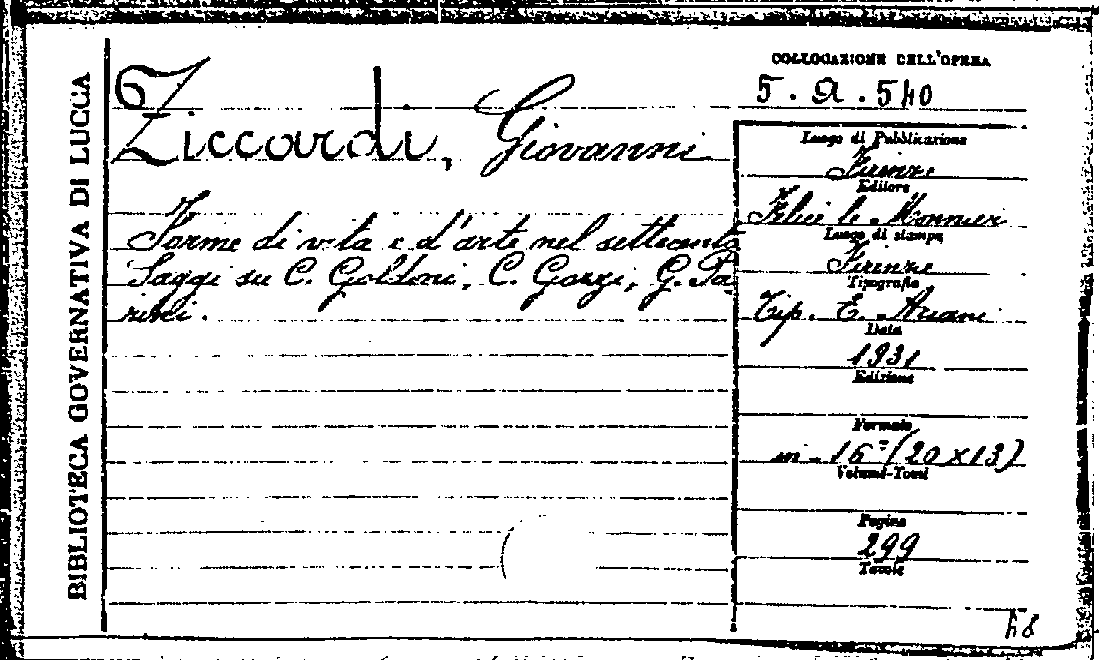 BIBLIOTECA GOVERNATIVA DI LUCCA
COLLOCAZIONE DELL'OPERA
5. a. 540
Ziccardi, Giovanni
Forme di vita e d'arte nel settecento
Saggi su C. Goldoni, C. Gozzi, G. Pa-
rini.
Luogo di Pubblicazione
Firenze
Editore
Felice le Monnier
Luogo di stampa
Firenze
Tipografia
Tip. E. Ariani
Data
1931
Edizione
Formato
in-16° (20x13)
Volumi-Tomi
Pagine
299
Tavole